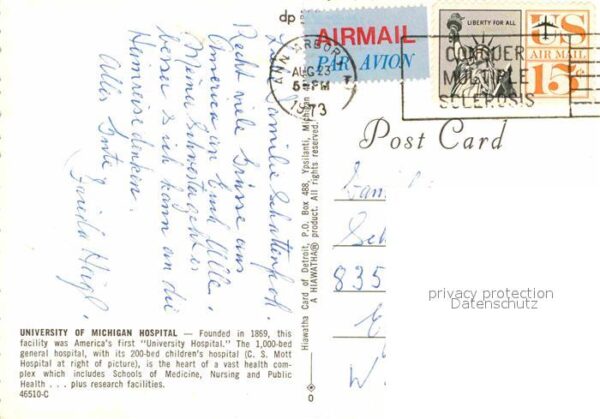 dp
AIRMAIL
PAR AVION
ANN ARBOR
AUG 23
5 PM
1973
LIBERTY FOR ALL
US
AIR MAIL
15¢
CONQUER
MULTIPLE
SCLEROSIS
Post Card
Liebe Familie
Recht viele Grüsse aus
America an Euch Alle.
Meiner Schwester geht es
besser & ich kann an die
Heimreise denken.
Alles Gute
Hiawatha Card of Detroit, P.O. Box 488, Ypsilanti, Michigan
A HIAWATHA® product. All rights reserved.
835
privacy protection
Datenschutz
W
UNIVERSITY OF MICHIGAN HOSPITAL — Founded in 1869, this
facility was America's first "University Hospital." The 1,000-bed
general hospital, with its 200-bed children's hospital (C. S. Mott
Hospital at right of picture), is the heart of a vast health com-
plex which includes Schools of Medicine, Nursing and Public
Health . . . plus research facilities.
46510-C
0